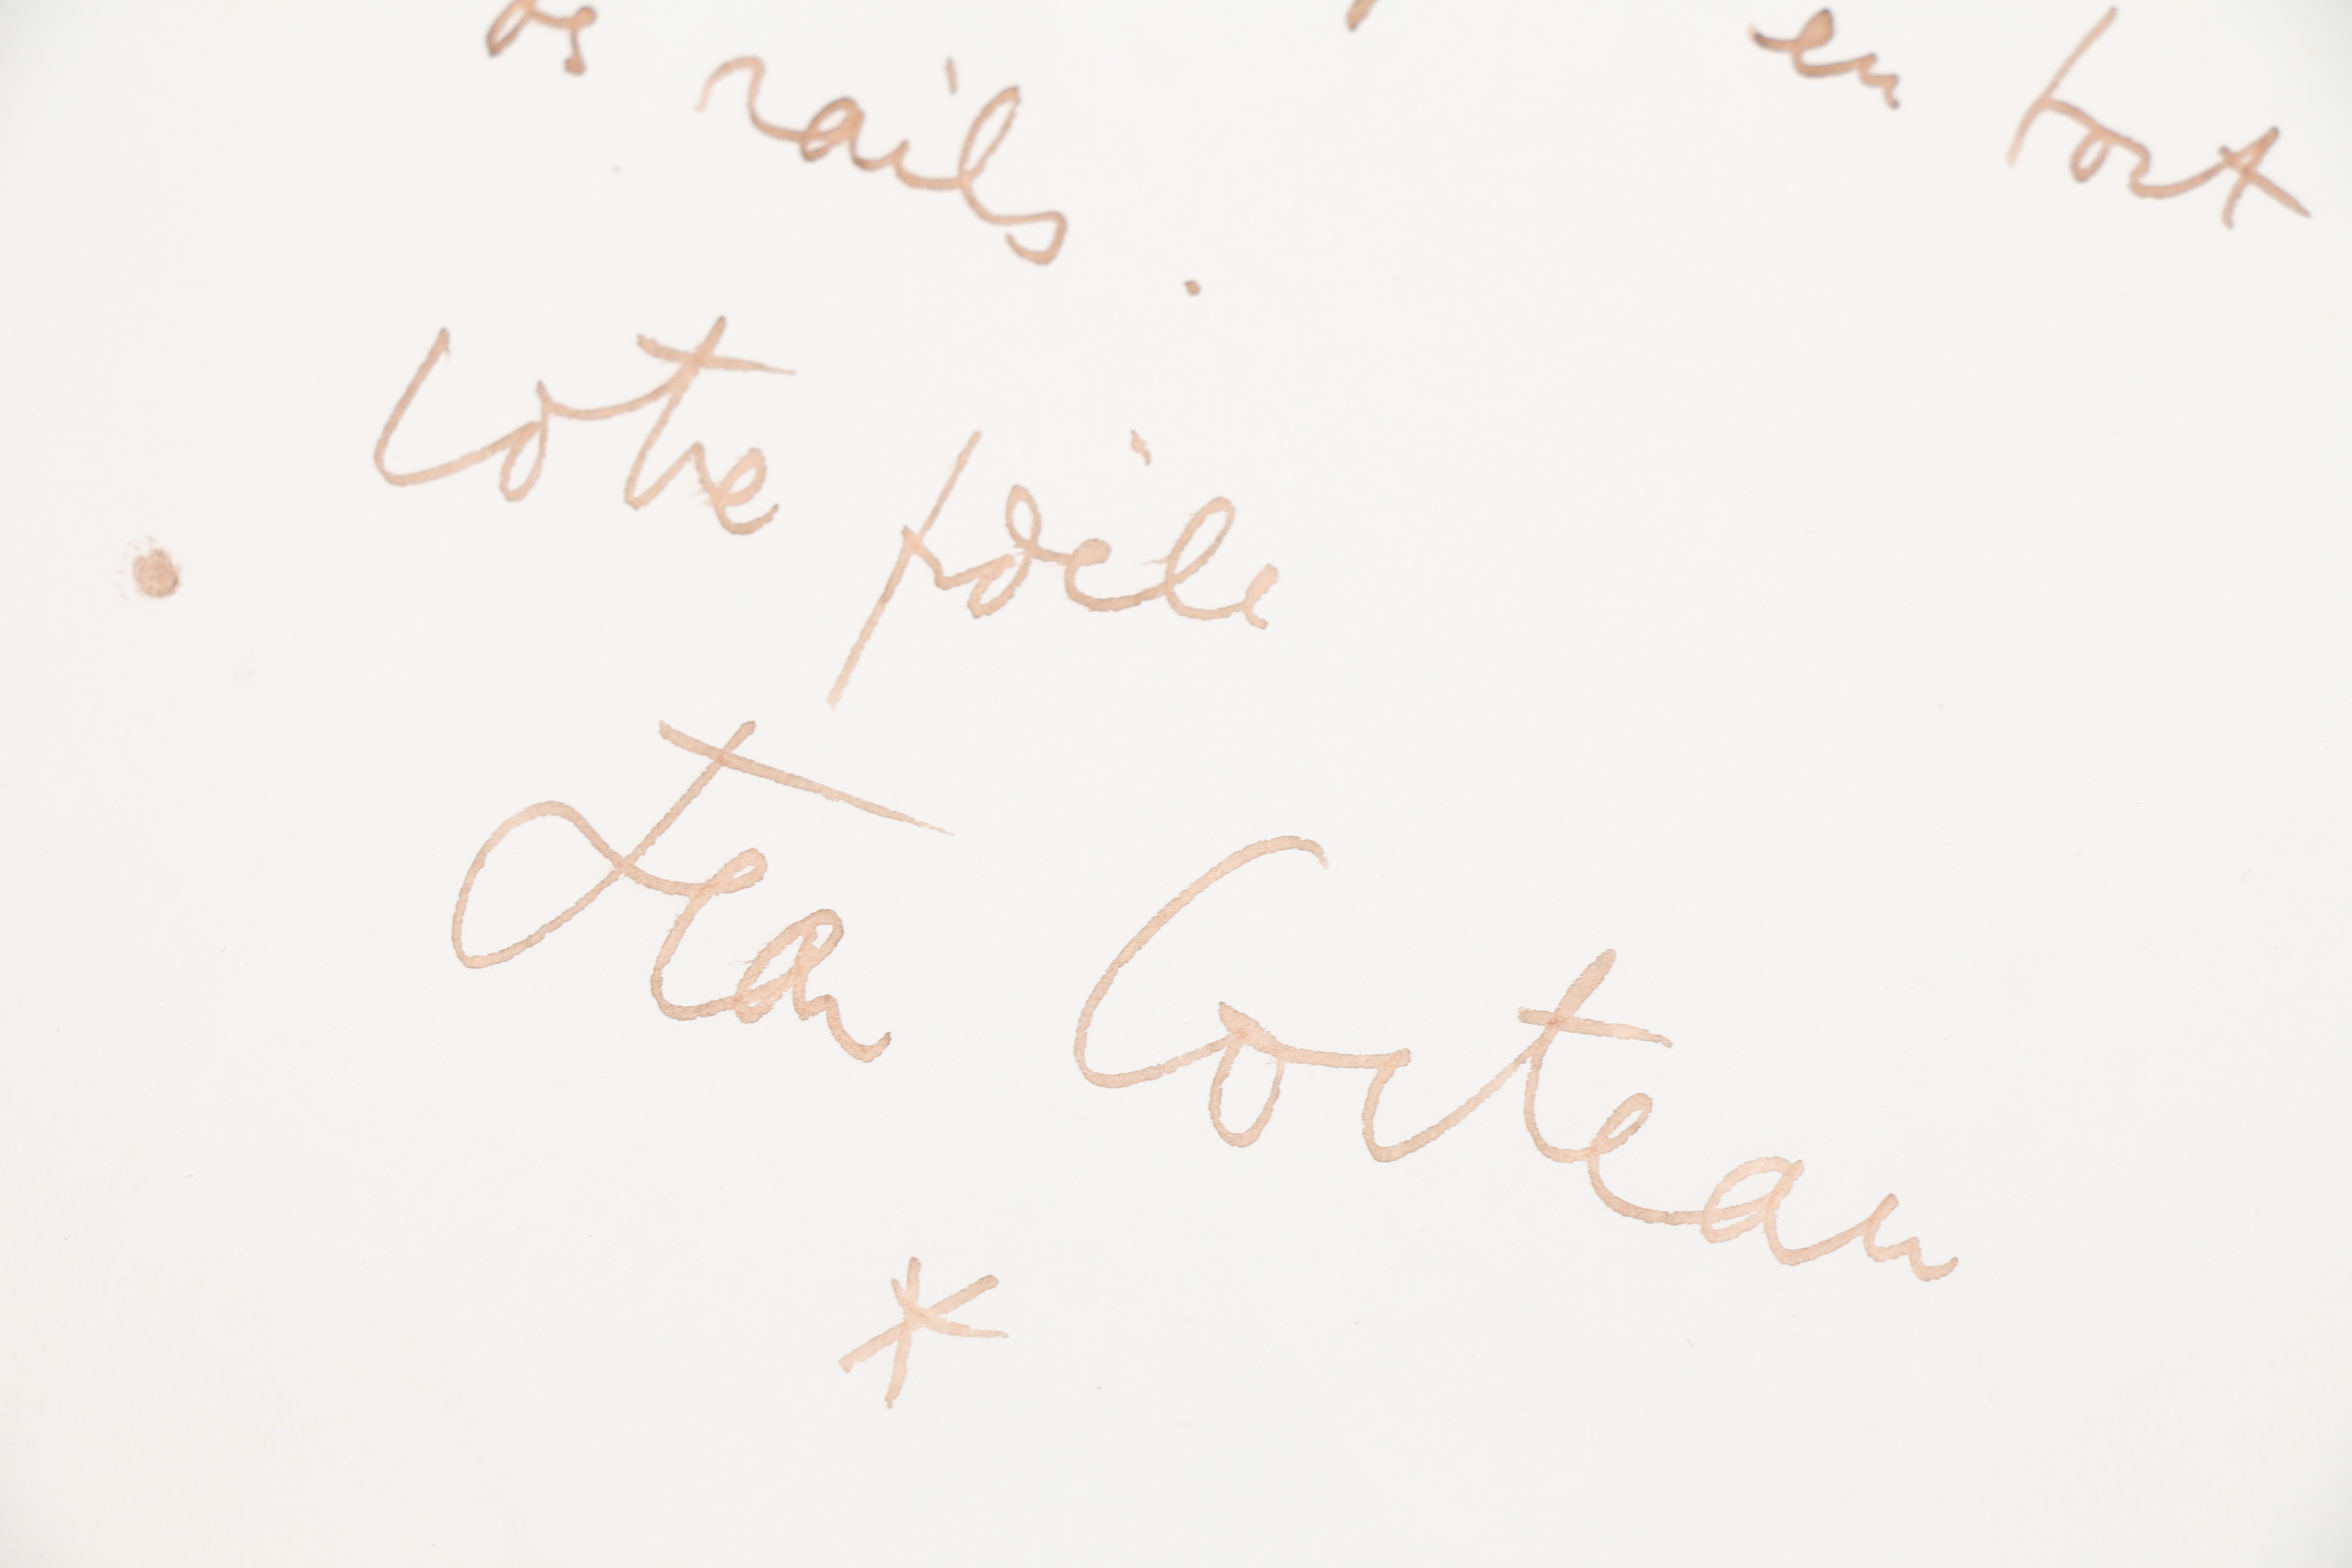 en tort
os rails.
Votre poële
Jean Cocteau
*